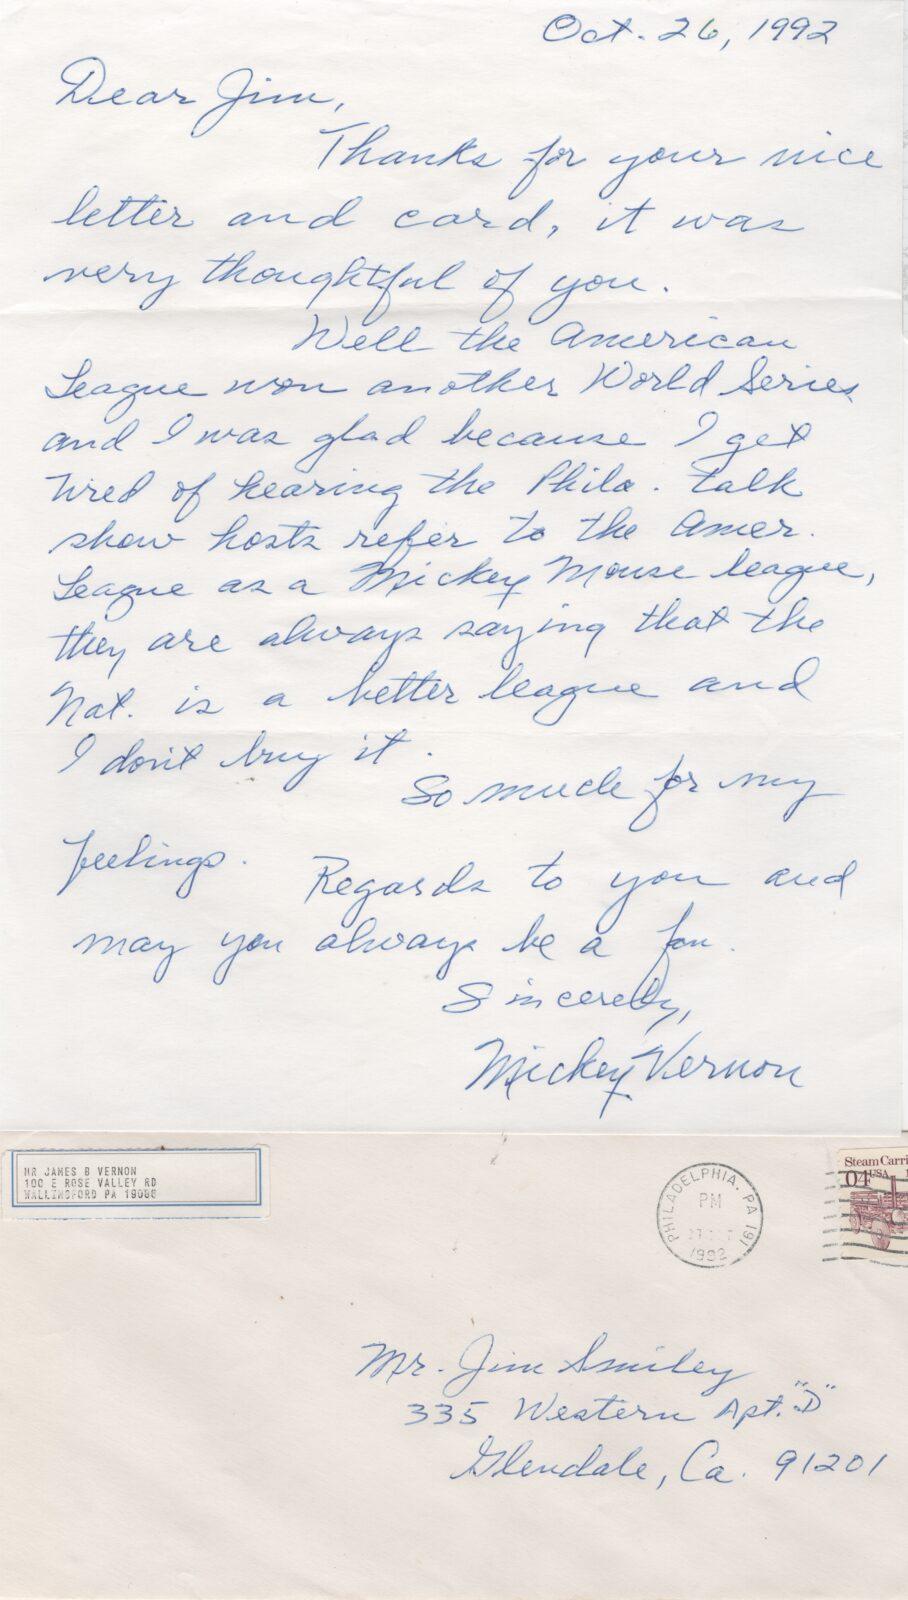 Oct. 26, 1992
Dear Jim,
Thanks for your nice
letter and card, it was
very thoughtful of you.
Well the American
League won another World Series
and I was glad because I get
tired of hearing the Phila. talk
show hosts refer to the Amer.
League as a Mickey Mouse league,
they are always saying that the
Nat. is a better league and
I don't buy it.
So much for my
feelings.
Regards to you and
may you always be a fan.
Sincerely,
Mickey Vernon
MR JAMES B VERNON
100 E ROSE VALLEY RD
WALLINGFORD PA 19086
PHILADELPHIA, PA 191
PM
27 OCT
1992
Steam Carri
04 USA
Mr. Jim Smiley
335 Western Apt. "D"
Glendale, Ca. 91201